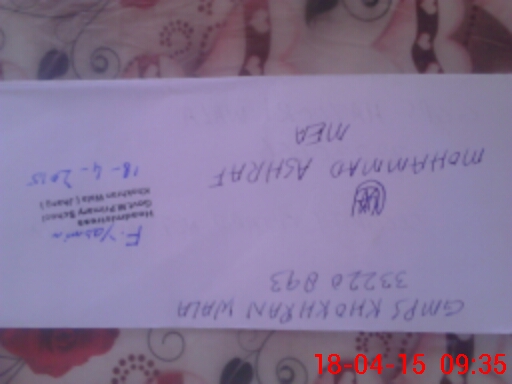 GMPS KHOKHRAN WALA
33220893
MOHAMMAD ASHRAF
MEA
F. Yasmin
Headmistress
Govt.M.Primary School
Khokhran Wala (Jhang)
18-4-2015
18-04-15 09:35